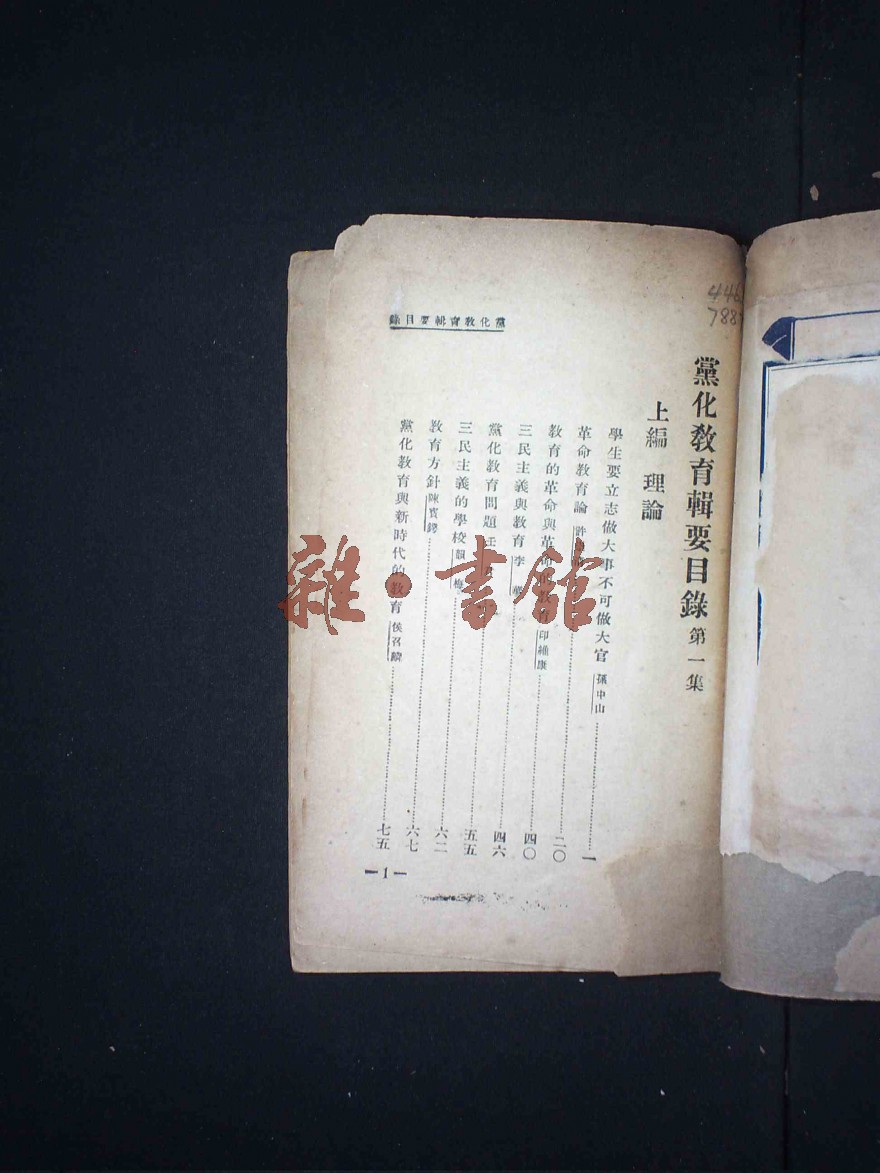 446
788
黨化教育輯要目錄 第一集
上編 理論
學生要立志做大事不可做大官 孫中山 一
革命教育論 許 二〇
教育的革命與革命 教育 印維廉 四〇
三民主義與教育 李 四六
黨化教育問題 王 五五
三民主義的學校 梅 六二
教育方針 陳賓鍔 六七
黨化教育與新時代的教育 侯召 七五
黨化教育輯要目錄
—1—
雜·書館